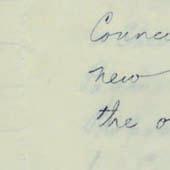 Counc
new
the o